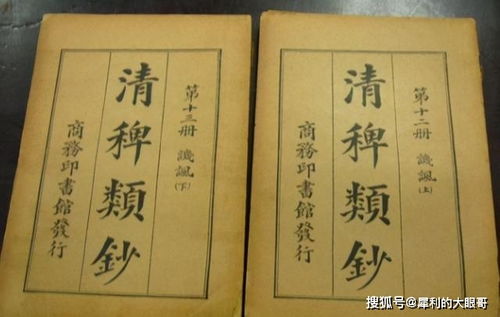 第十二册 譏諷(上)
清稗類鈔
商務印書館發行
第十三册 譏諷(下)
清稗類鈔
商務印書館發行
搜狐号@犀利的大眼哥